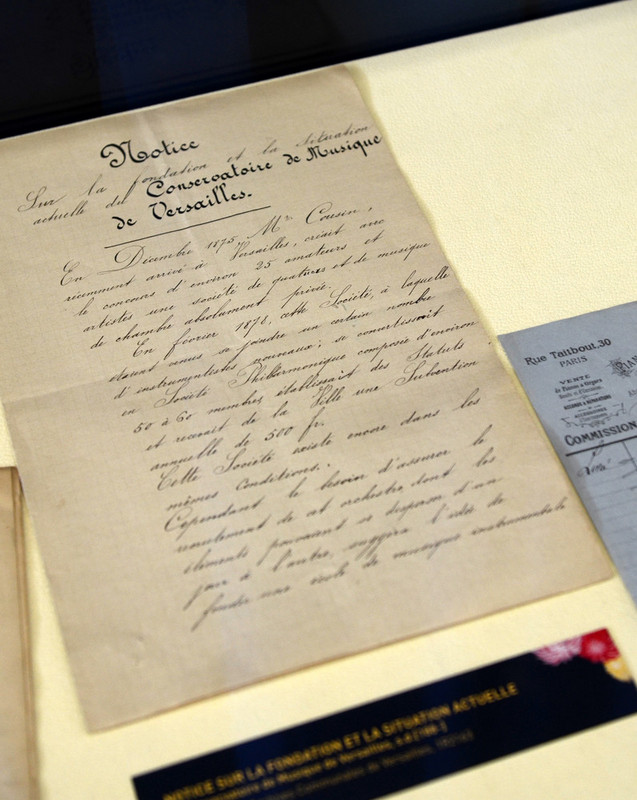 Notice
Sur la fondation et la situation
actuelle du Conservatoire de Musique
de Versailles.
En Décembre 1875, Mr Cousin,
récemment arrivé à Versailles, créait avec
le concours d'environ 25 amateurs et
artistes une société de quatuors et de musique
de chambre absolument privée.
En février 1878, cette Société, à laquelle
étaient venus se joindre un certain nombre
d'instrumentistes nouveaux, se convertissait
en Société Philharmonique composée d'environ
50 à 60 membres, établissait des Statuts
et recevait de la Ville une Subvention
annuelle de 500 fr.
Cette Société existe encore dans les
mêmes conditions.
Cependant le besoin d'assurer le
recrutement de cet orchestre, dont les
éléments pouvaient se disperser d'un
jour à l'autre, suggéra l'idée de
fonder une école de musique instrumentale
Rue Taitbout. 30
PARIS
VENTE
COMMISSION
NOTICE SUR LA FONDATION ET LA SITUATION ACTUELLE
Conservatoire de Musique de Versailles